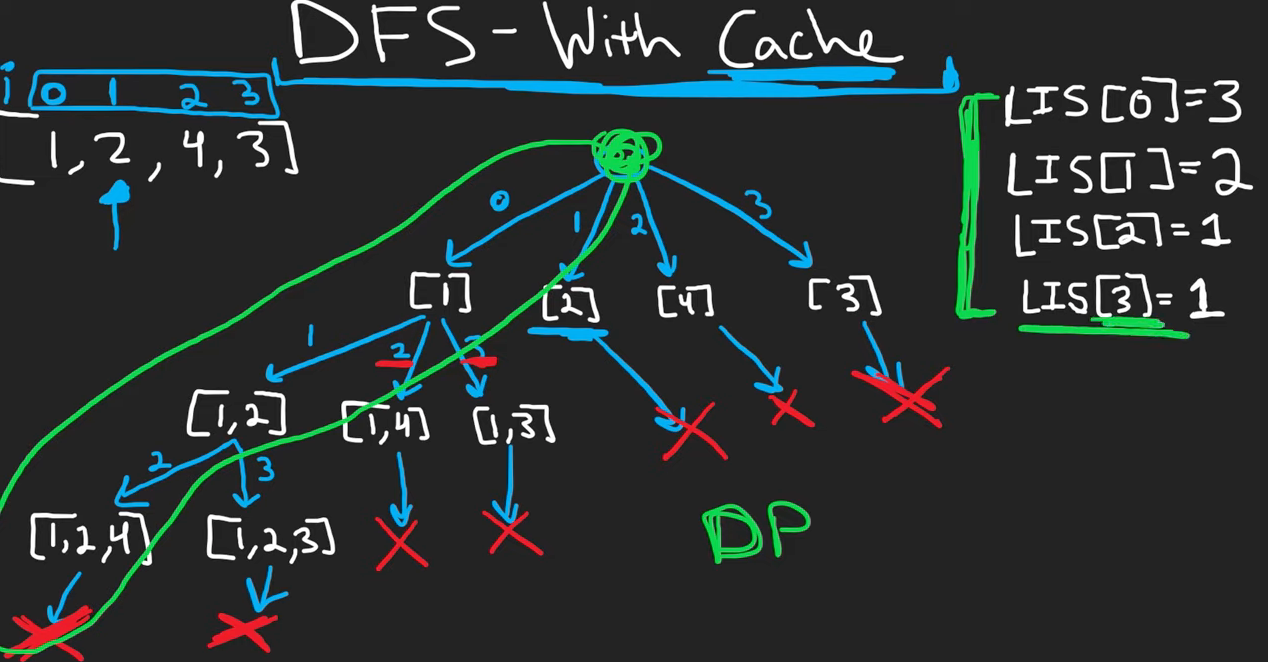 DFS - With Cache
i 0 1 2 3
[1, 2, 4, 3]
LIS[0]=3
LIS[1]=2
LIS[2]=1
LIS[3]=1
0 1 2 3
[1] [2] [4] [3]
1 2 3
[1,2] [1,4] [1,3]
2 3
[1,2,4] [1,2,3]
DP